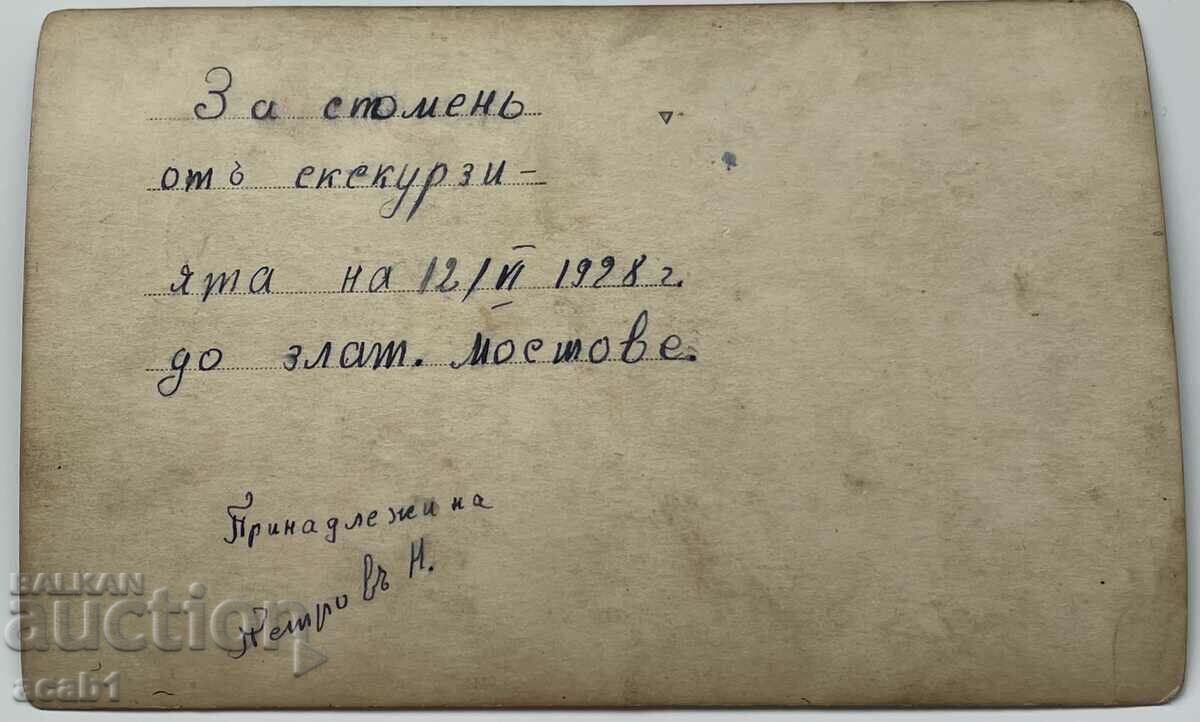 За стомень
отъ екскурзи-
ята на 12/VI 1928 г.
до злат. мостове.
Принадлежи на
Петровъ Н.
BALKAN
auction
acab1